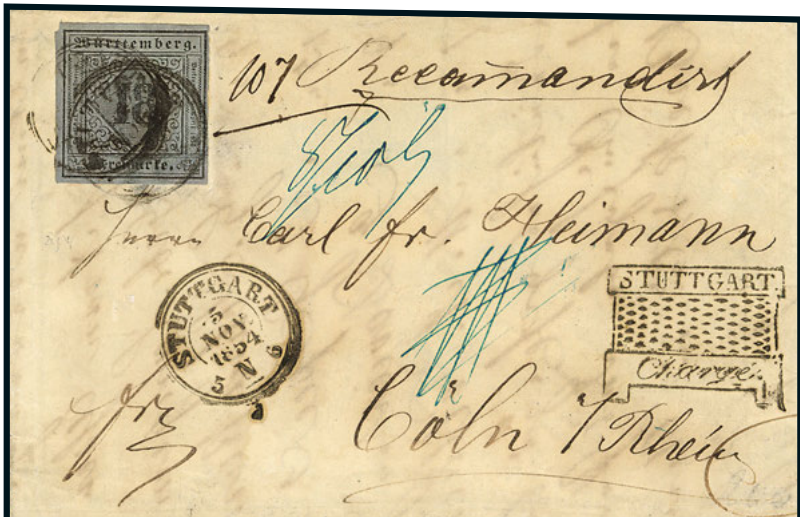 Württemberg.
18
107 Recomandirt
Herrn Carl Fr. Heimann
STUTTGART
5
NOV.
1854
5 N 6
STUTTGART.
Charge.
frz
Cöln a/Rhein